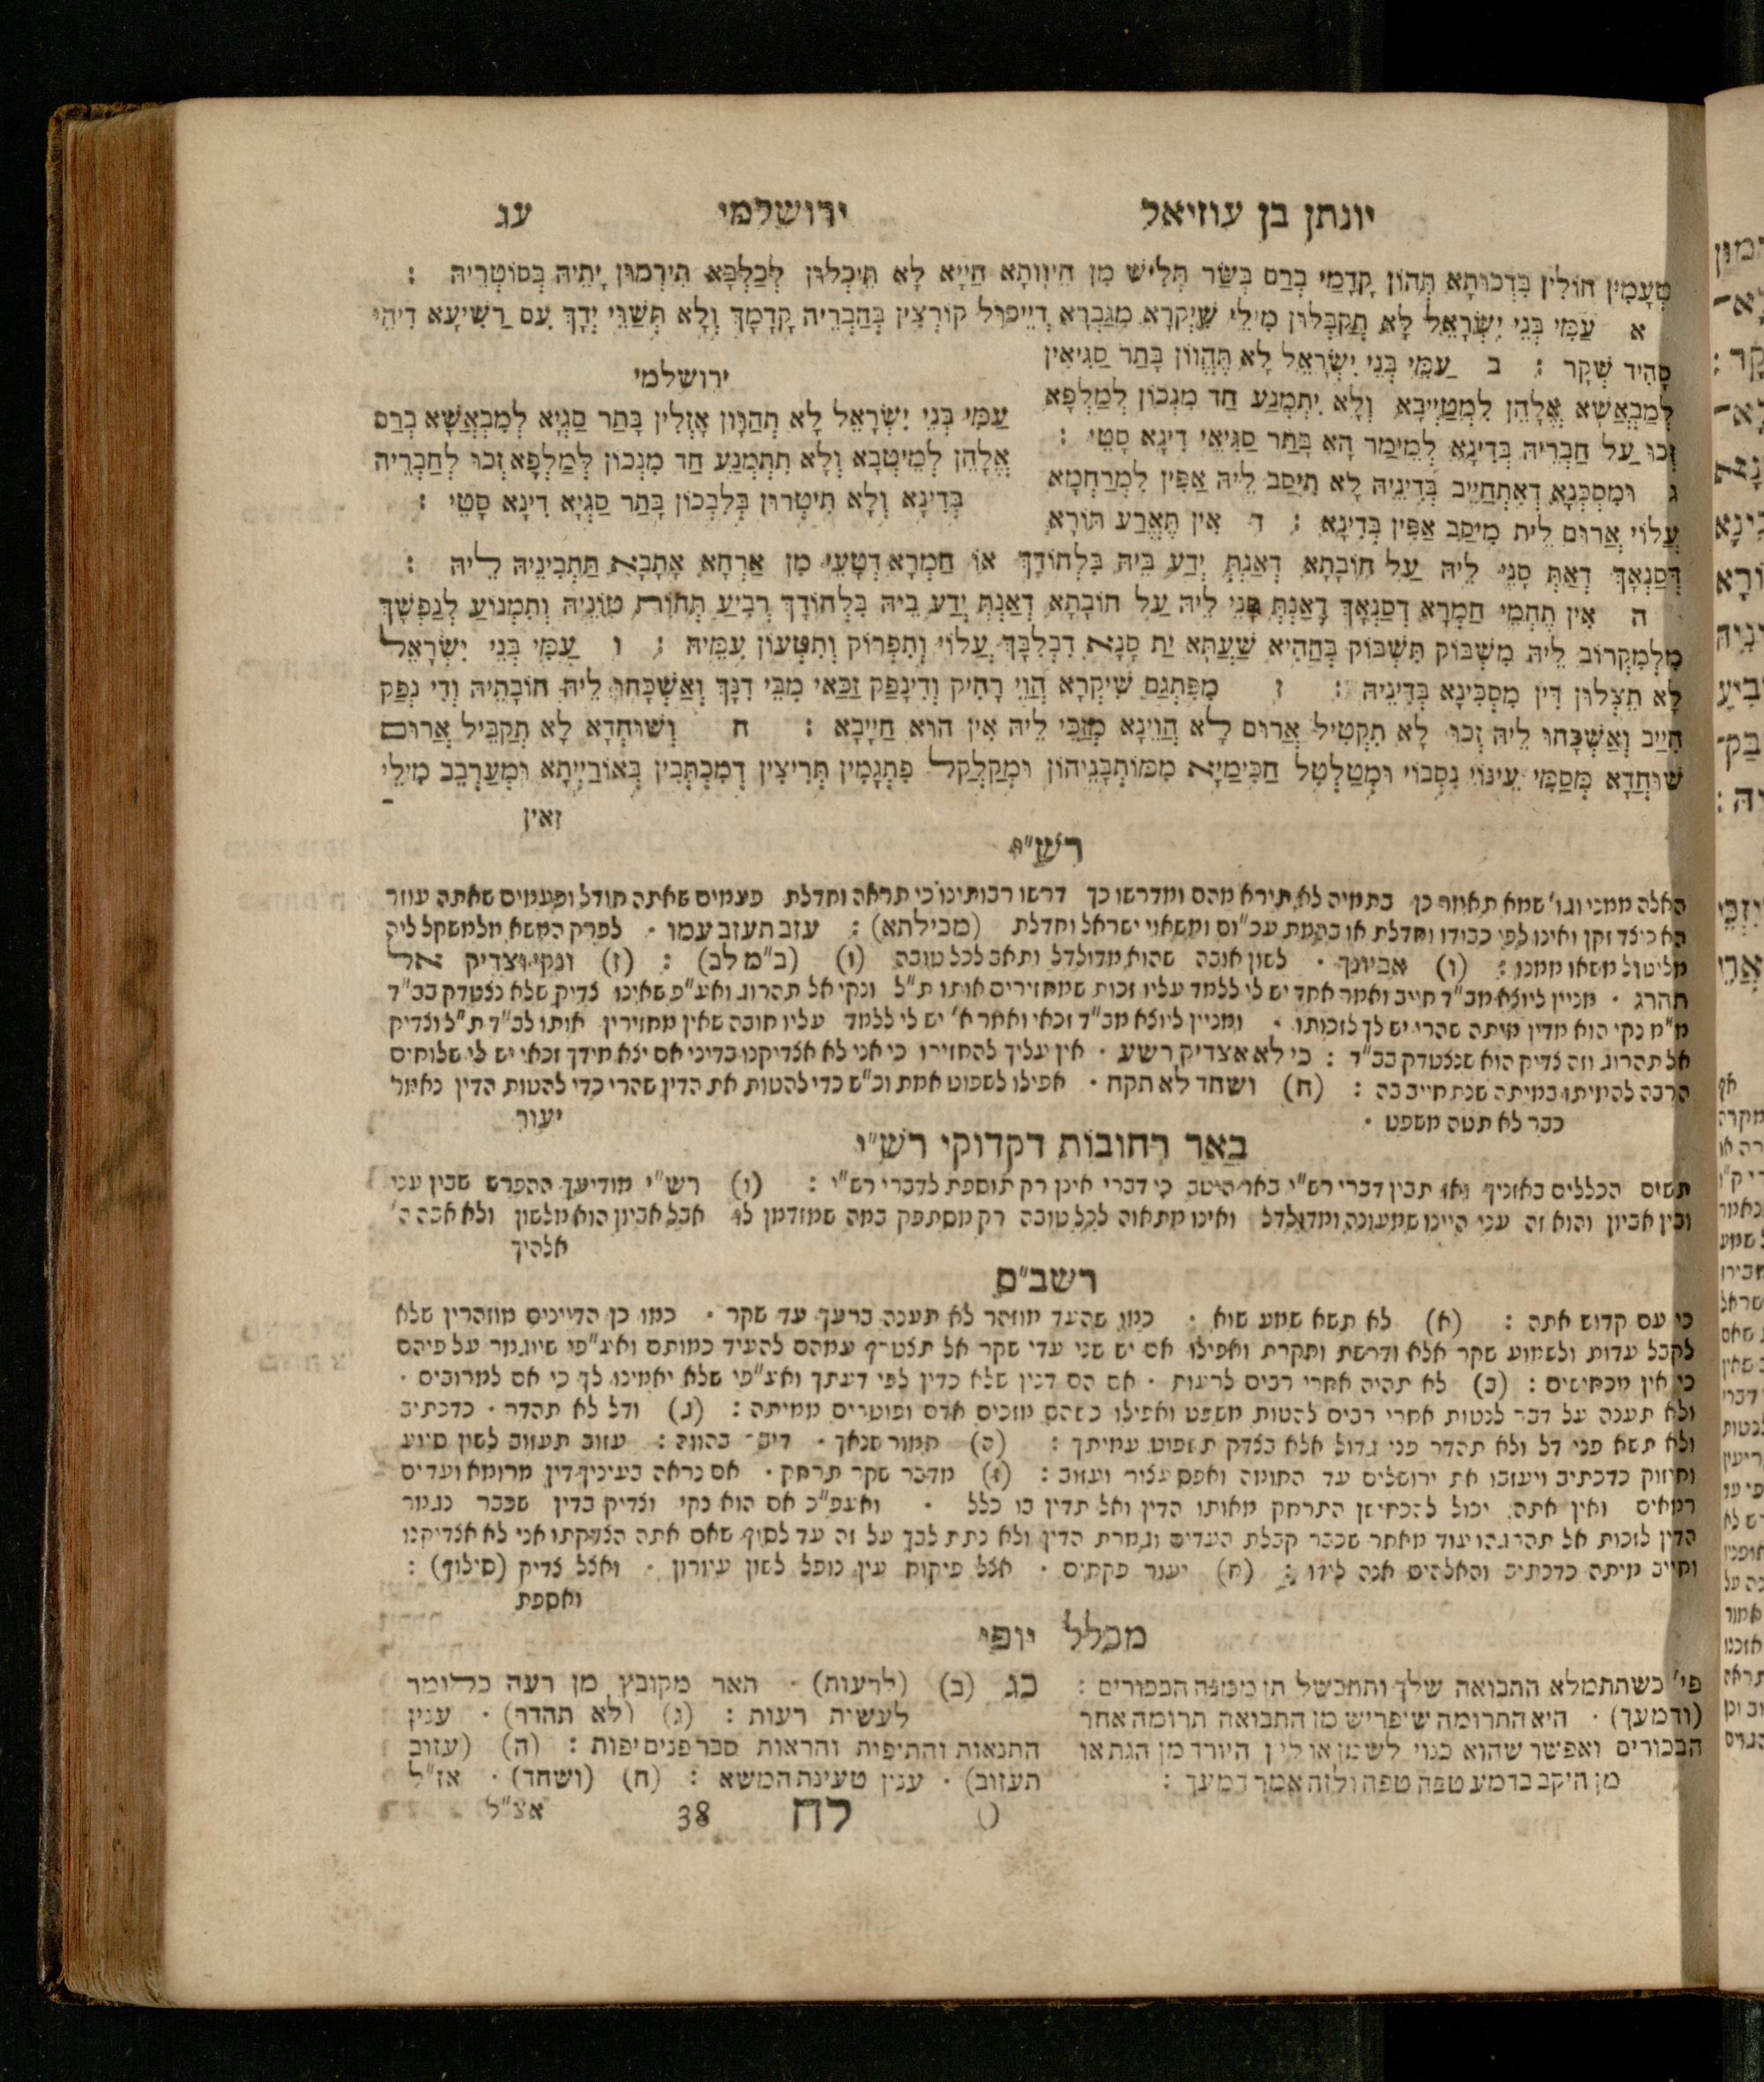 יונתן בן עוזיאל ירושלמי עג
טְעָמִין חוֹלִין בְּדְכוּתָא תְּהוֹן קָדָמַי בְּרַם בְּשַׂר תְּלִישׁ מִן חֵיוְותָא חַיָיא לָא תֵּיכְלוּן לְכַלְבָּא תִּירְמוּן יָתֵיהּ בְּסוֹטְרֵיהּ :
א עַמִּי בְּנֵי יִשְׂרָאֵל לָא תְקַבְּלוּן מִילֵי שִׁיקְרָא מִגַּבְרָא דְיֵיכוּל קוּרְצִין בְּחַבְרֵיהּ קֳדָמָךְ וְלָא תְּשַׁוֵּי יְדָךְ עִם רַשִּׁיעָא דִיהֵי
סָהִיד שְׁקָר : ב עַמִּי בְּנֵי יִשְׂרָאֵל לָא תֶּהֱווֹן בָּתַר סַגִּיאִין
לְמַבְאֲשָׁא אֱלָהֵן לְמֵטַיְיבָא וְלָא יִתְמְנַע חַד מִנְכוֹן לְמַלְפָא
זְכוּ עַל חַבְרֵיהּ בְּדִינָא לְמֵימַר הָא בָּתַר סַגִּיאֵי דִינָא סָטֵי :
ג וּמִסְכְּנָא דְאִתְחַיֵּיב בְּדִינֵיהּ לָא תִיסַב לֵיהּ אַפִּין לְמְרַחְמָא
עֲלוֹי אֲרוּם לֵית מֵיסַב אַפִּין בְּדִינָא : ד אִין תֶּאֱרַע תּוֹרָא
ירושלמי
עַמִּי בְּנֵי יִשְׂרָאֵל לָא תְהַוְּון אָזְלִין בָּתַר סַגְיָא לְמַבְאֲשָׁא בְּרַם
אֱלָהֵן לְמֵיטְבָא וְלָא תִתְמְנַע חַד מִנְכוֹן לְמַלְפָא זְכוּ לְחַבְרֵיהּ
בְּדִינָא וְלָא תִיטְרוּן בְּלִבְכוֹן בָּתַר סַגְיָא דִינָא סָטֵי :
דְּסַנְאָךְ דְאַתְּ סָנֵי לֵיהּ עַל חוֹבָתָא דְאַנְתְּ יְדַע בֵּיהּ בִּלְחוֹדָךְ אוֹ חַמְרָא דְטָעֵי מִן אַרְחָא אָתָבָא תַּתְבִינֵיהּ לֵיהּ :
ה אִין תֶּחְמֵי חַמְרָא דְסַנְאָךְ דְאַנְתְּ סָנֵי לֵיהּ עַל חוֹבָתָא דְאַנְתְּ יְדַע בֵיהּ בִּלְחוֹדָךְ רְבִיעַ תְּחוֹת טוּנֵיהּ וְתִמְנוֹעַ לְנַפְשָׁךְ
מִלְמִקְרוֹב לֵיהּ מִשְׁבּוֹק תִּשְׁבּוֹק בְּהַהִיא שַׁעֲתָא יַת סָנָא דִבְלִבָּךְ עֲלוֹי וְתִפְרוֹק וְתִטְעוֹן עִמֵּיהּ : ו עַמִּי בְּנֵי יִשְׂרָאֵל
לָא תֵצְלוּן דִּין מִסְכֵּינָא בְּדִינֵיהּ : ז מִפִּתְגַם שִׁיקְרָא הֱוֵי רָחִיק וְדִינָפַק זַכַּאי מִבֵּי דִנָךְ וְאַשְׁכָּחוּ לֵיהּ חוֹבָתֵיהּ וְדִי נְפַק
חַיַיב וְאַשְׁכָּחוּ לֵיהּ זְכוּ לָא תִקְטִיל אֲרוּם לָא הֲוֵינָא מְזַכֵּי לֵיהּ אִין הוּא חַיָיבָא : ח וְשׁוּחְדָא לָא תְקַבֵּיל אֲרוּם
שׁוּחְדָא מְסַמֵּי עֵינוֹי נִסְבוֹי וּמְטַלְטֵל חַכִּימַיָא מִמּוֹתְבָנֵיהוֹן וּמְקַלְקֵל פִּתְגָמִין תְּרִיצִין דְמִכְתְּבִין בְּאוֹרַיְיתָא וּמְעַרְבֵב מִילֵי
זאין
רש״י
האלה ממני וגו׳ שמא תאמר כן בתמיה לא תירא מהם ומדרשו כך דרשו רבותינו כי תראה וחדלת פעמים שאתה חודל ופעמים שאתה עוזר
הא כיצד זקן ואינו לפי כבודו וחדלת או בהמת עכ״ום ומשאוי ישראל וחדלת (מכילתא) : עזב תעזב עמו · לפרק המשא מלמשקל ליה
מליטול משאו ממנו : (ו) אביונך · לשון אובה שהוא מדולדל ותאב לכל טובה (ו) (ב״מ לב) : (ז) ונקי וצדיק אל
תהרג · מניין ליוצא מב״ד חייב ואמר אחד יש לי ללמד עליו זכות שמחזירים אותו ת״ל ונקי אל תהרוג ואע״פ שאינו צדיק שלא נצטדק בב״ד
מ״מ נקי הוא מדין מיתה שהרי יש לך לזכותו · ומניין ליוצא מב״ד זכאי ואמר א׳ יש לי ללמד עליו חובה שאין מחזירין אותו לב״ד ת״ל וצדיק
אל תהרוג וזה צדיק הוא שנצטדק בב״ד : כי לא אצדיק רשע · אין עליך להחזירו כי אני לא אצדיקנו בדיני אם יצא מידך זכאי יש לי שלוחים
הרבה להמיתו במיתה שנתחייב בה : (ח) ושחד לא תקח · אפילו לשפוט אמת וכ״ש כדי להטות את הדין שהרי כדי להטות הדין נאמר
כבר לא תטה משפט ·
יעור
באר רחובות דקדוקי רש״י
תשים הכללים באזניך ואז תבין דברי רש״י באר היטב כי דברי אינן רק תוספת לדברי רש״י : (ו) רש״י מודיעך ההפרש שבין עני
ובין אביון והוא זה עני היינו שמעונה ומדולדל ואינו מתאוה לכל טובה רק מסתפק במה שמזדמן לו אבל אביון הוא מלשון ולא אבה ה׳
אלהיך
רשב״ם
כי עם קדוש אתה : (א) לא תשא שמע שוא · כמו שהעד מוזהר לא תענה ברעך עד שקר · כמו כן הדיינים מוזהרין שלא
לקבל עדות ולשמוע שקר אלא ודרשת וחקרת ואפילו אם יש שני עדי שקר אל תצטרף עמהם להעיד כמותם ואע״פי שיוגמר על פיהם
כי אין מכחישים : (ב) לא תהיה אחרי רבים לרעות · אם הם דנין שלא כדין לפי דעתך ואע״פי שלא יאמינו לך כי אם למרובים ·
ולא תענה על דבר לנטות אחרי רבים להטות משפט ואפילו כשהם מזכים אדם ופוטרים ממיתה : (ג) ודל לא תהדר · כדכתיב
ולא תשא פני דל ולא תהדר פני גדול אלא בצדק תשפוט עמיתך : (ה) חמור שנאך · עזוב תעזוב לשון סיוע
וחיזוק כדכתיב ויעזבו את ירושלים עד החומה ואפס עצור ועזוב : (ז) מדבר שקר תרחק · אם נראה בעיניך דין מרומא ועדים
רמאים ואין אתה יכול להכחישן התרחק מאותו הדין ואל תדין בו כלל · ואעפ״כ אם הוא נקי וצדיק בדין שכבר נגמר
הדין לזכות אל תהרגהו עוד מאחר שכבר קבלת העדים וגמרת הדין ולא נתת לבך על זה עד לסוף שאם אתה הצדקתו אני לא אצדיקנו
וחייב מיתה כדכתיב והאלהים אנה לידו : (ח) יעור פקחים · אצל פיקוח עין נופל לשון עיורון · ואצל צדיק (סילוף) :
ואספת
מכלל יופי
פי׳ כשתתמלא התבואה שלך ותתבשל תן ממנה הבכורים :
(ודמעך) · היא התרומה שיפריש מן התבואה תרומה אחר
הבכורים ואפשר שהוא כנוי לשמן או ליין היורד מן הגת או
מן היקב בדמע טפה טפה ולזה אמר דמעך :
כג (ב) (לרעות) · תאר מקובץ מן רעה כלומר
לעשית רעות : (ג) (לא תהדר) · ענין
התנאות והתיפות והראות סבר פנים יפות : (ה) (עזוב
תעזוב) · ענין טעינת המשא : (ח) (ושחד) · אז״ל
לח 38 אצ״ל